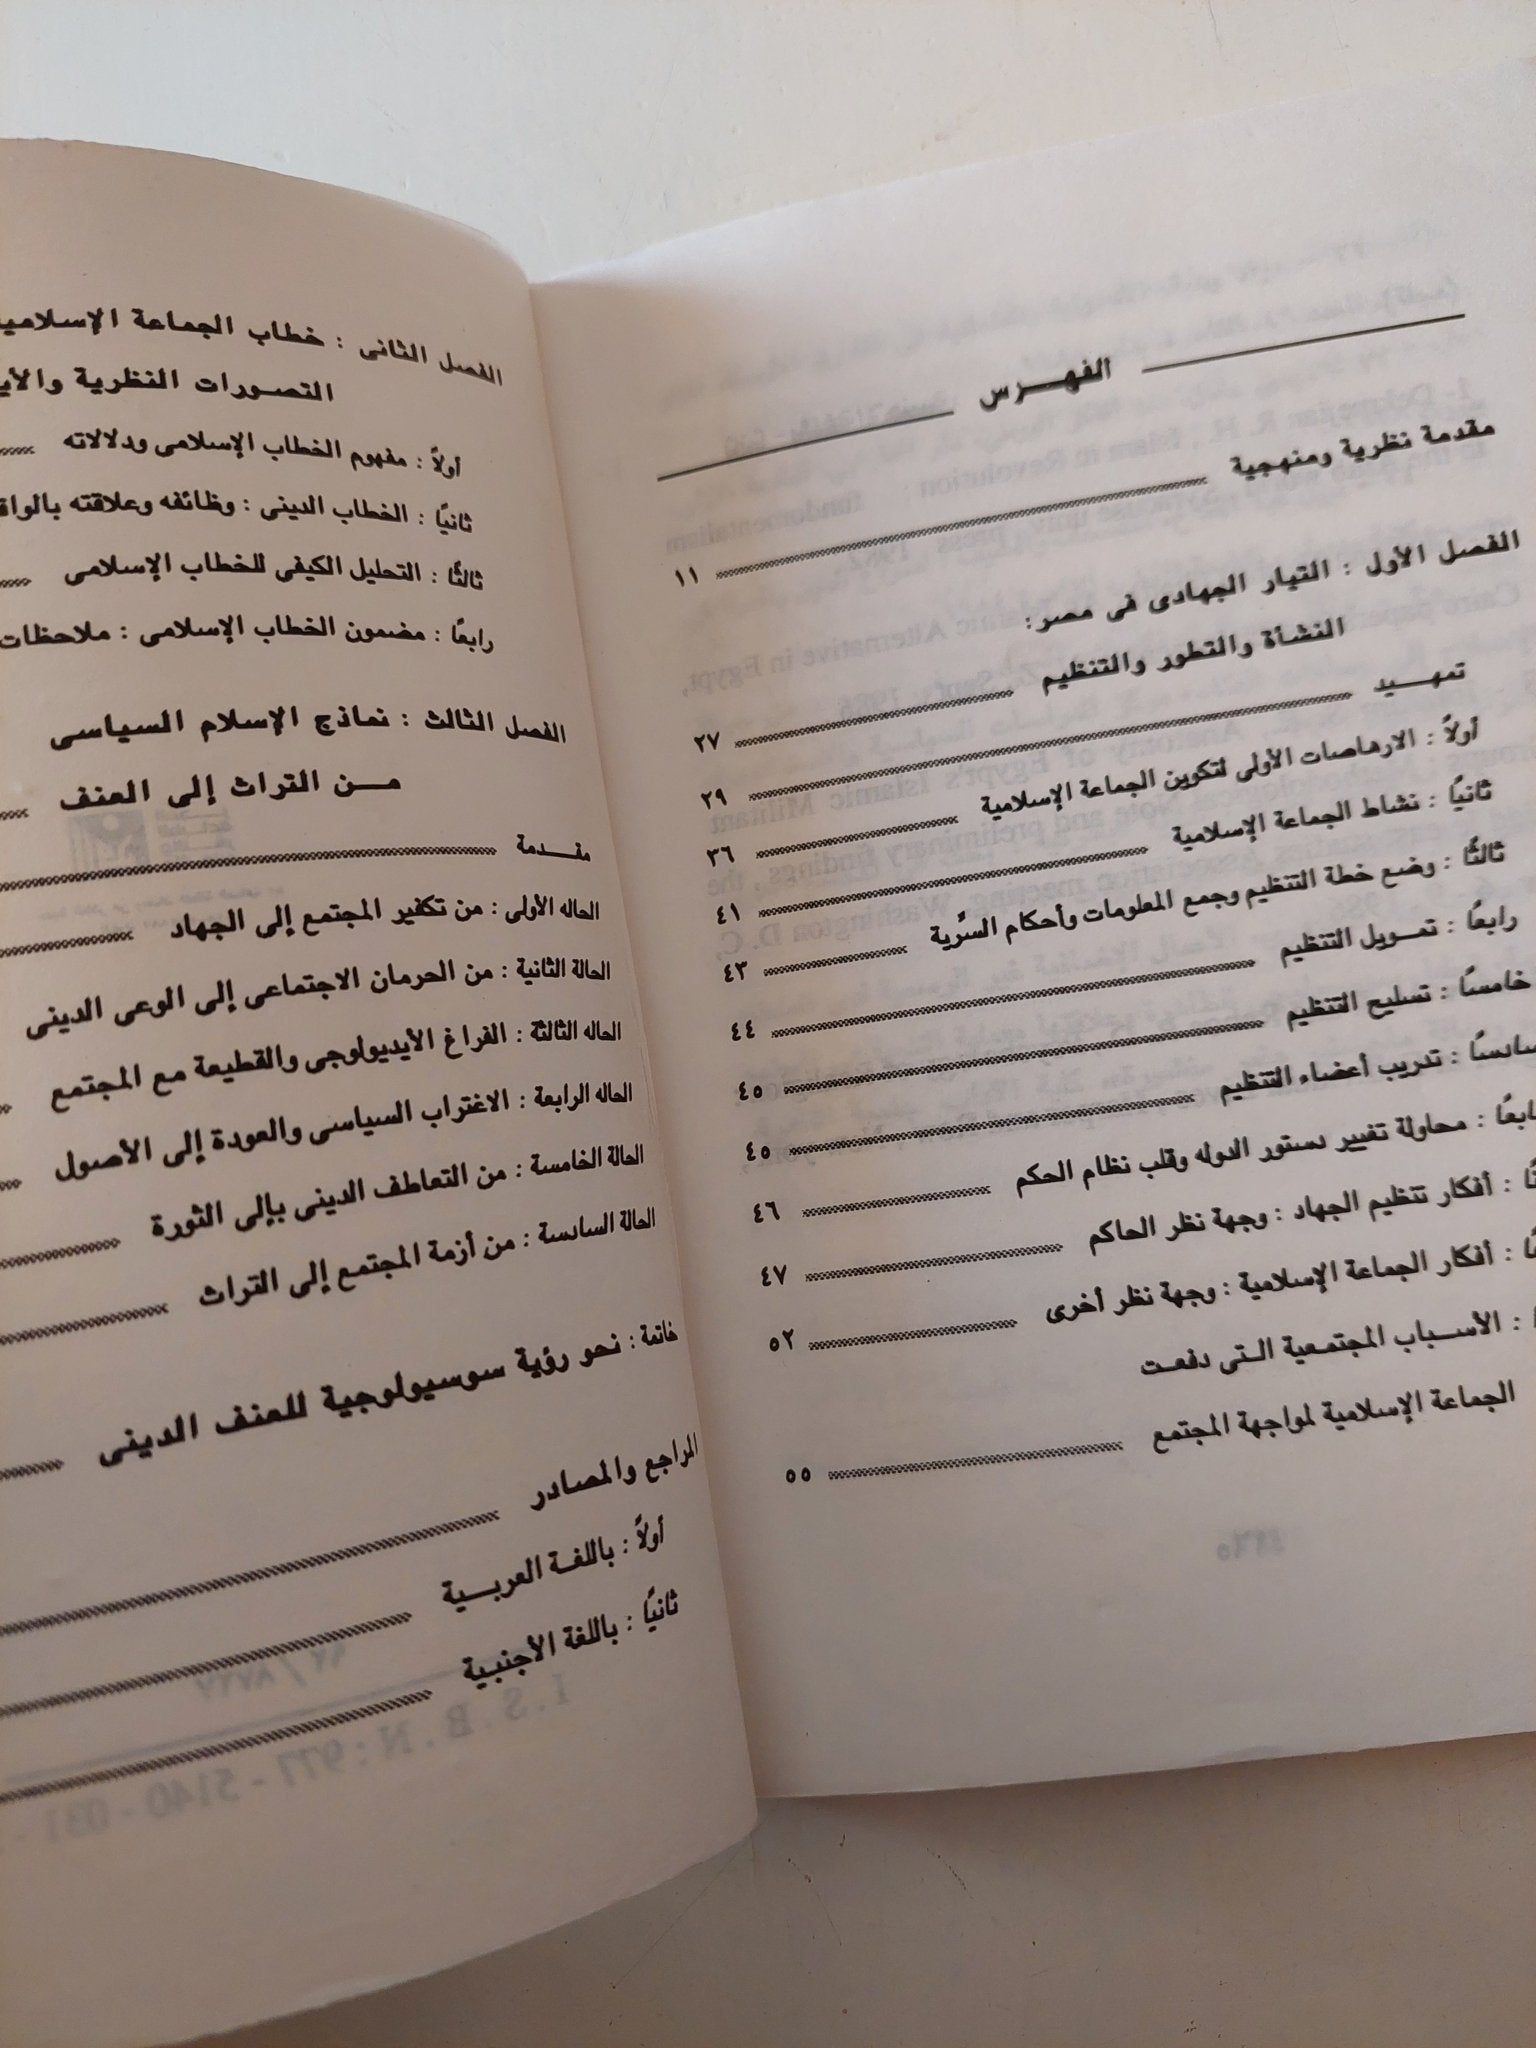 الفهرس
مقدمة نظرية ومنهجية ١١
الفصل الأول : التيار الجهادى فى مصر :
النشأة والتطور والتنظيم ٢٧
تمهيد ٢٩
أولاً : الارهاصات الأولى لتكوين الجماعة الإسلامية ٣٦
ثانيًا : نشاط الجماعة الإسلامية ٤١
ثالثًا : وضع خطة التنظيم وجمع المعلومات وأحكام السِّرية ٤٣
رابعًا : تمويل التنظيم ٤٤
خامسًا : تسليح التنظيم ٤٥
سادسًا : تدريب أعضاء التنظيم ٤٥
: محاولة تغيير دستور الدوله وقلب نظام الحكم ٤٦
: أفكار تنظيم الجهاد : وجهة نظر الحاكم ٤٧
: أفكار الجماعة الإسلامية : وجهة نظر أخرى ٥٢
: الأسباب المجتمعية التى دفعت
الجماعة الإسلامية لمواجهة المجتمع ٥٥
الفصل الثانى : خطاب الجماعة
التصورات النظرية
أولاً : مفهوم الخطاب الإسلامى ودلالاته
ثانيًا : الخطاب الدينى : وظائفه وعلاقته
ثالثًا : التحليل الكيفى للخطاب الإسلامى
رابعًا : مضمون الخطاب الإسلامى : ملاحظات
الفصل الثالث : نماذج الإسلام السياسى
من التراث إلى العنف
مقدمة
الحاله الأولى : من تكفير المجتمع إلى الجهاد
الحالة الثانية : من الحرمان الاجتماعى إلى الوعى الدينى
الحاله الثالثة : الفراغ الأيديولوجى والقطيعة مع المجتمع
الحاله الرابعة : الاغتراب السياسى والعودة إلى الأصول
الحالة الخامسة : من التعاطف الدينى بإلى الثورة
الحالة السادسة : من أزمة المجتمع إلى التراث
خاتمة : نحو رؤية سوسيولوجية للعنف الدينى
المراجع والمصادر
أولاً : باللغة العربية
ثانيًا : باللغة الأجنبية